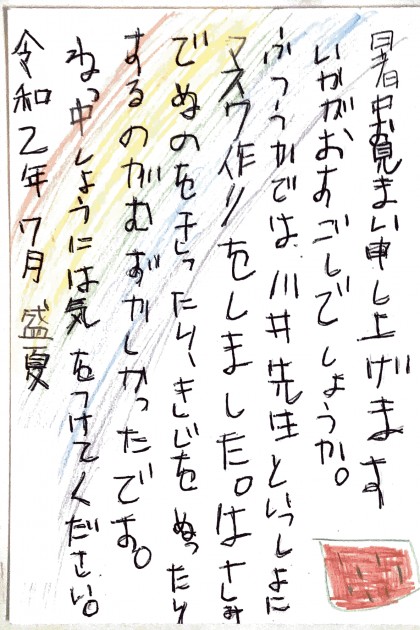 暑中お見まい申し上げます
いかがおすごしでしょうか。
ふっうかでは川井先生といっしょに
マスク作りをしました。はさみ
でぬのをきったり、きじをぬったり
するのがむずかしかったです。
ねっ中しょうには気をつけてください。
令和2年7月 盛夏